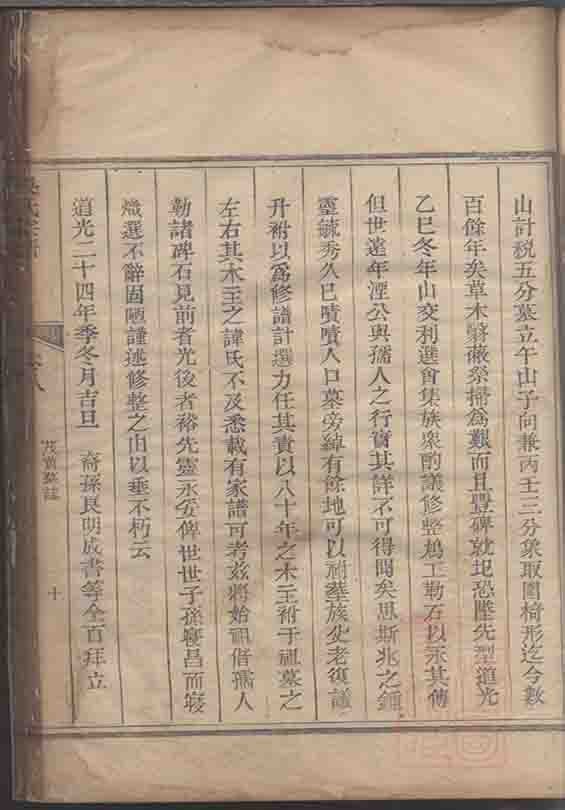 山計稅五分墓立午山子向兼丙壬三分象取圍椅形迄今數
百餘年矣草木翳薉祭掃為艱而且豐碑就圮恐墜先型道光
乙巳冬年山交利選會集族衆酌議修整鳩工勒石以永其傳
但世遠年湮公與孺人之行實其詳不可得聞矣思斯兆之鍾
靈毓秀久已嘖嘖人口墓旁綽有餘地可以祔葬族史老復議
升祔以為修譜計選力任其責以八十年之木主祔于祖墓之
左右其木主之諱氏不及悉載有家譜可考茲將始祖偕孺人
勒諸碑石見前者光後者裕先靈永妥俾世世子孫寖昌而寖
熾選不辭固陋謹述修整之由以垂不朽云
道光二十四年季冬月吉旦 裔孫良明成書等仝百拜立
氏宗
八
茂 墓誌
十